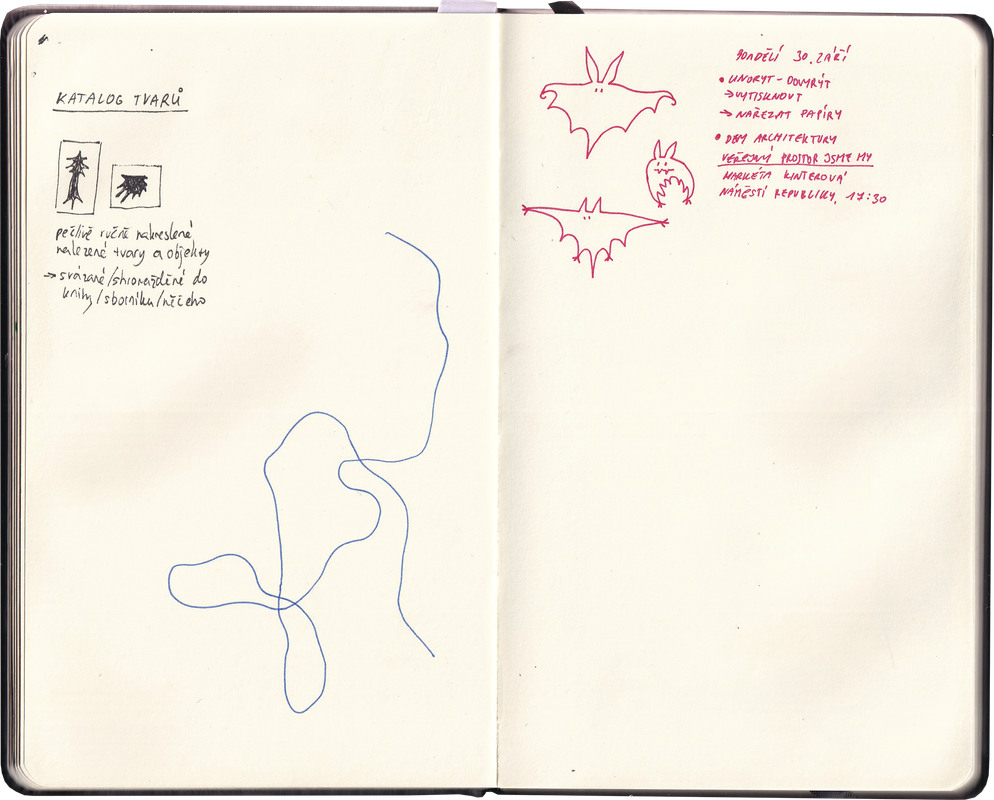 KATALOG TVARŮ
pečlivě ručně nakreslené
nalezené tvary a objekty
→ svázané/shromážděné do
knihy/sborníku/něčeho
PONDĚLÍ 30. ZÁŘÍ
• LINORYT - DORÝT
→ VYTISKNOUT
→ NAŘEZAT PAPÍRY
• DEN ARCHITEKTURY
VEŘEJNÝ PROSTOR JSME MY
MARKÉTA KINTEROVÁ
NÁMĚSTÍ REPUBLIKY, 17:30